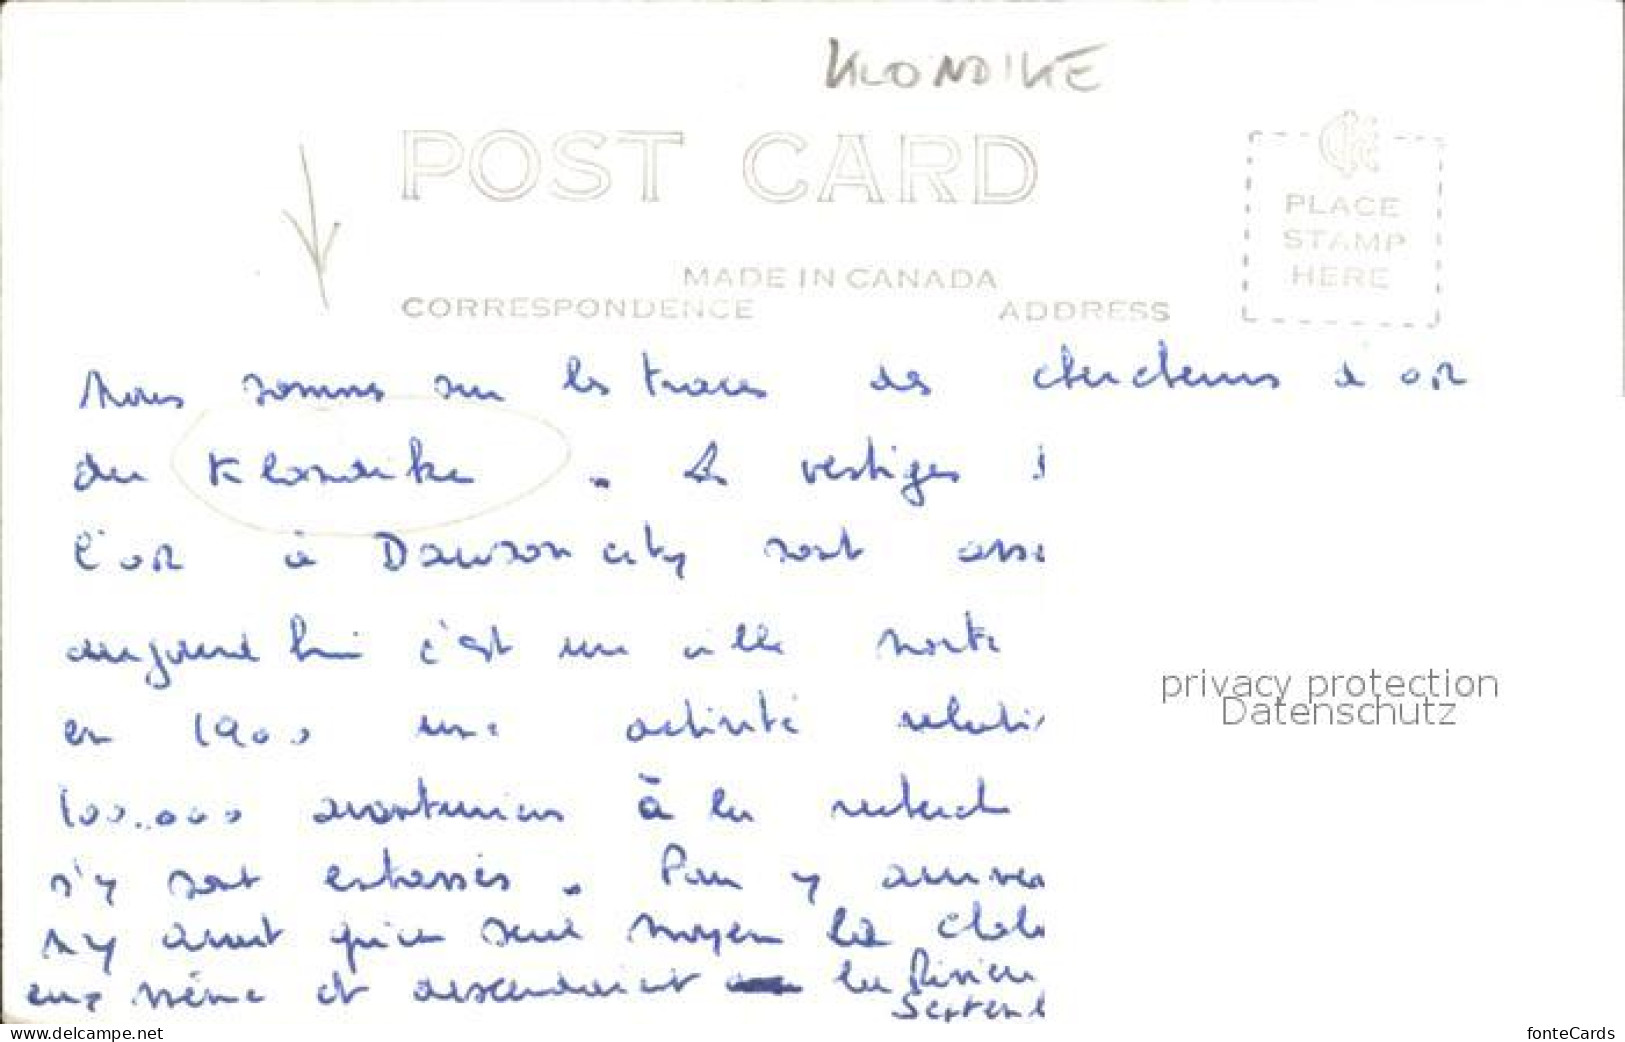 KLONDIKE
POST CARD
PLACE
STAMP
HERE
MADE IN CANADA
CORRESPONDENCE
ADDRESS
Nous sommes sur les traces des chercheurs d'or
du Klondike. vestiges
l'or à Dawson city sont
aujourd'hui c'est une ville morte
en 1900 une activité
100.000 aventuriers à la
s'y sont entassés. Pour y
n'y avait qu'un seul moyen la
eux même et descendaient la
Septem
privacy protection
Datenschutz
www.delcampe.net
fonteCards